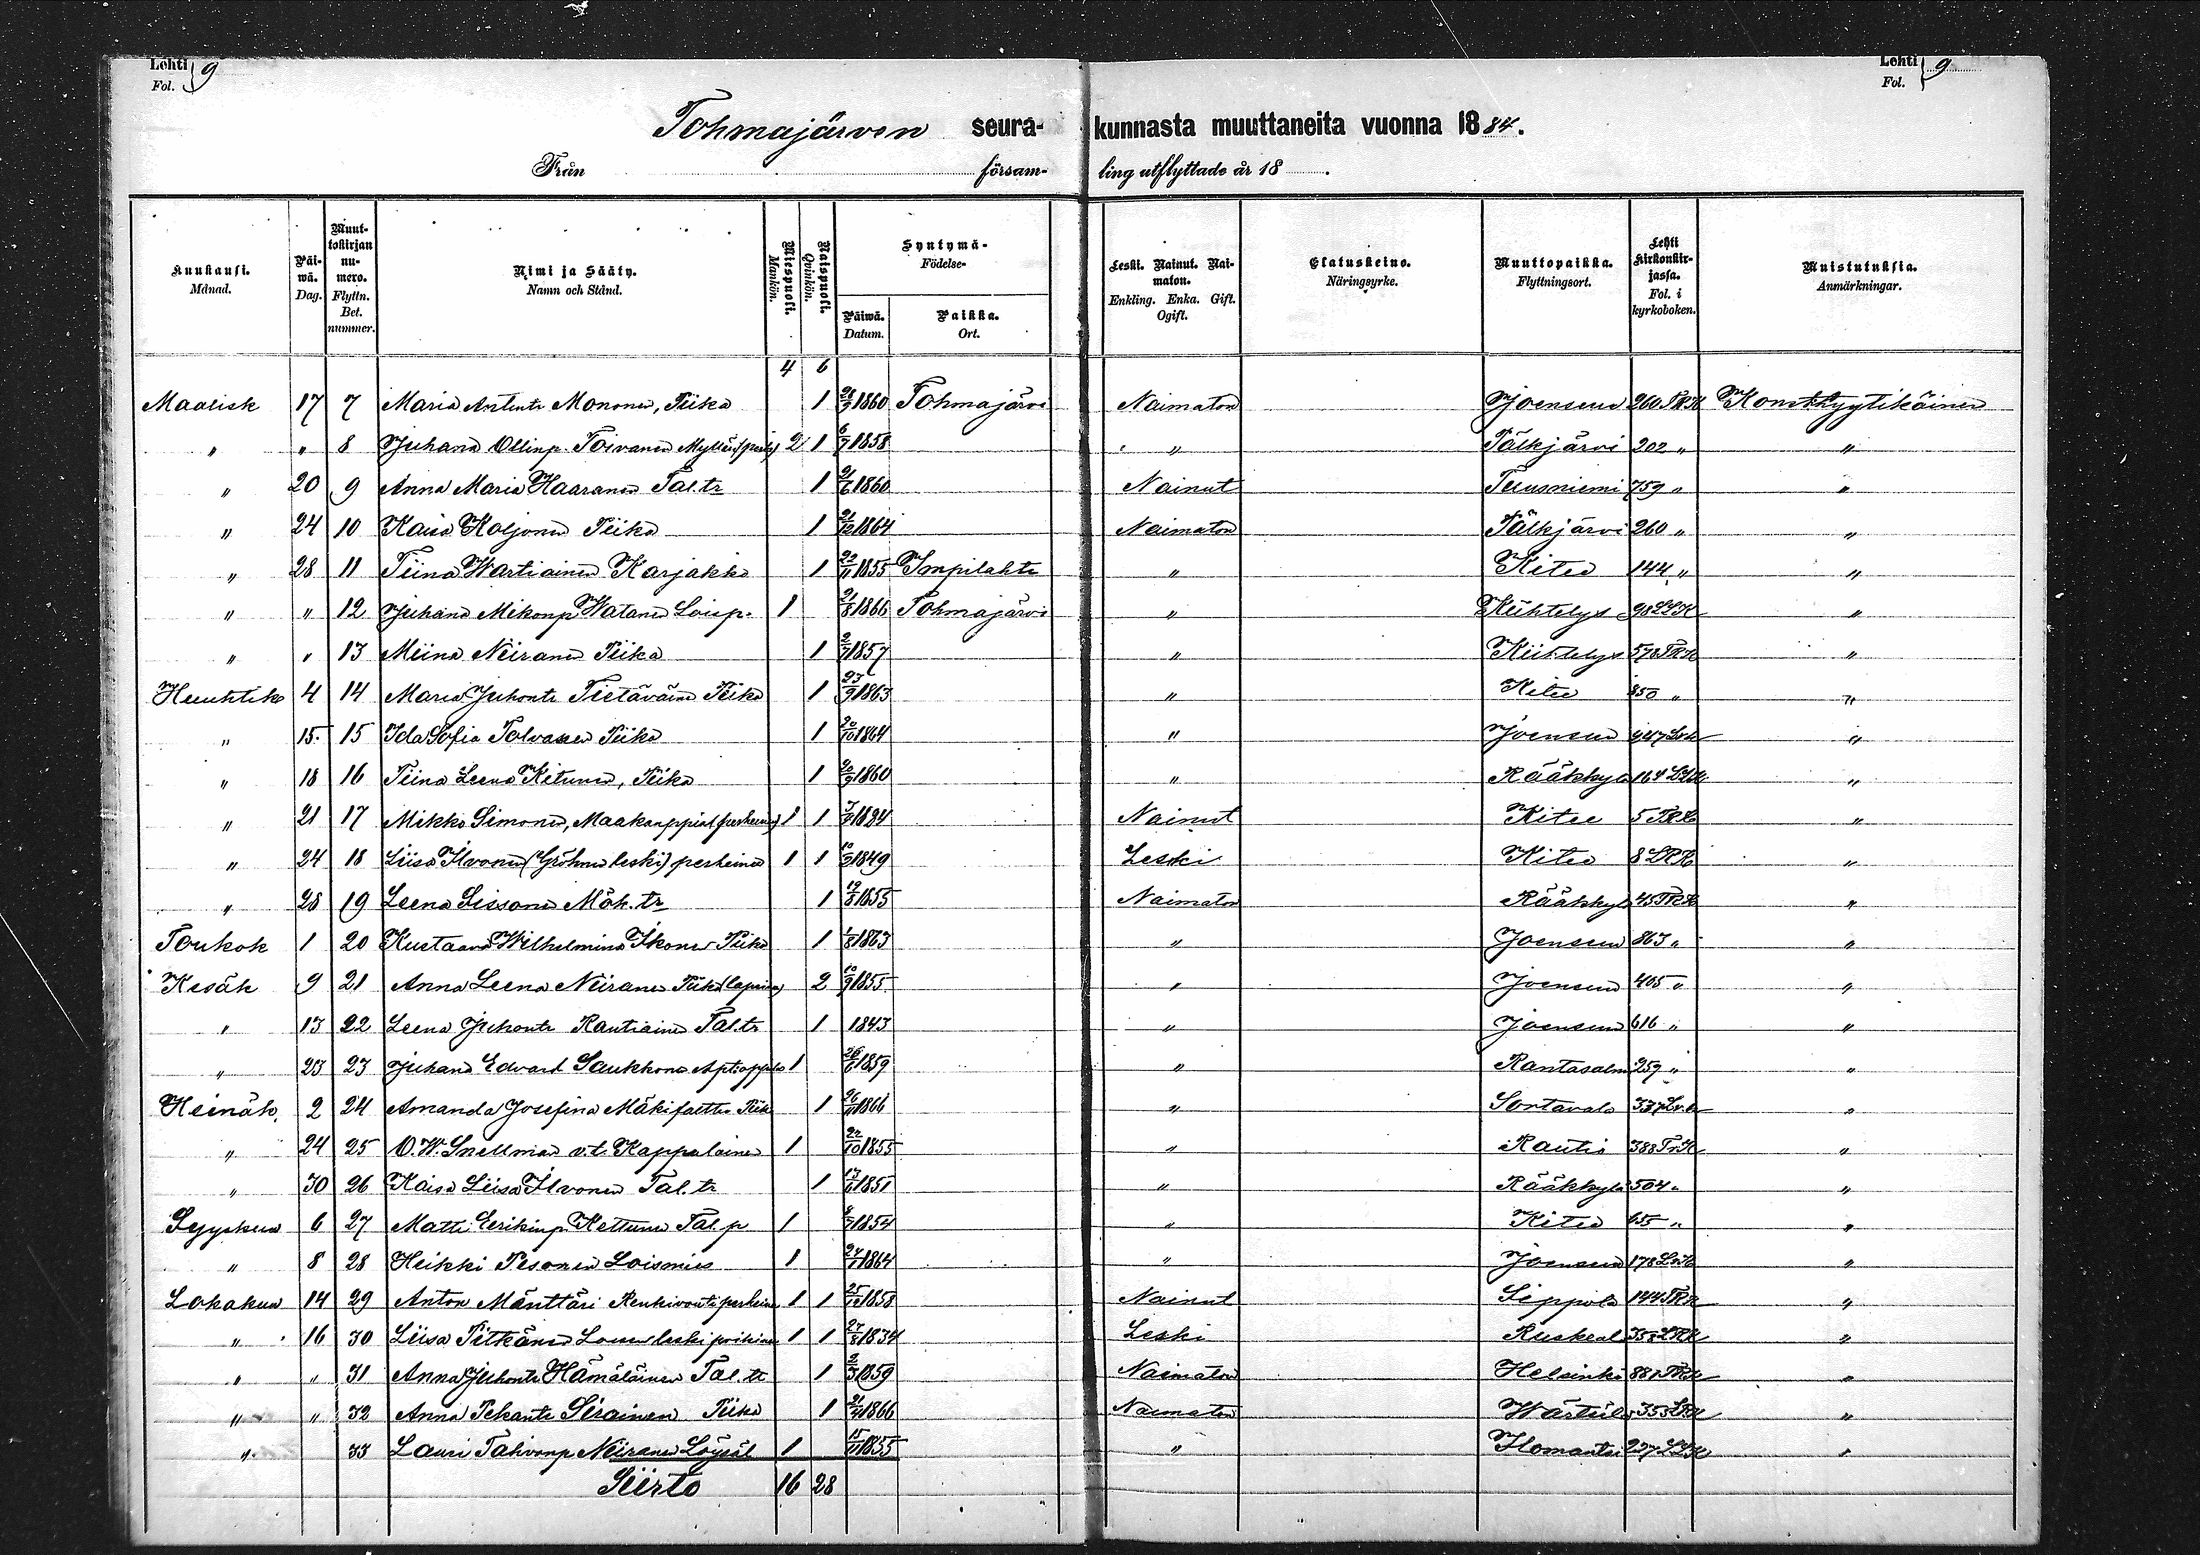 Lehti } 9
Fol.
Lehti } 9
Fol.
Tohmajärven seura- kunnasta muuttaneita vuonna 1884.
Från försam- ling utflyttade år 18 .
Kuukausi. Månad.
Päi-wä. Dag.
Muut-tokirjan nu-mero. Flyttn. Bet. nummer.
Nimi ja Sääty. Namn och Stånd.
Miespuoli. Mankön.
Naispuoli. Qvinkön.
Syntymä- Födelse-
Päiwä. Datum.
Paikka. Ort.
Leski. Nainut. Nai-maton. Enkling. Enka. Gift. Ogift.
Elatuskeino. Näringsyrke.
Muuttopaikka. Flyttningsort.
Lehti kirkonkir-jassa. Fol. i kyrkoboken.
Muistutuksia. Anmärkningar.
4 6
Maalisk 17 7 Maria Antintr Mononen, Piika 1 1860 Tohmajärvi Naimaton Joensuu 260 TKK
" " 8 Juhana Ollinp. Toivanen 2 1 1858 " Pälkjärvi 202 " "
" 20 9 Anna Maria Haaranen Tal.tr 1 1860 Nainut Tuusniemi 759 " "
" 24 10 Kaisa Koljonen Piika 1 21/12 1864 Naimaton Pälkjärvi 260 " "
" 28 11 Tiina Wartiainen Karjakko 1 1855 Impilahti " Kitee 144 " "
" " 12 Juhana Mikonp Watanen Loisp. 1 21/8 1866 Tohmajärvi " Kiihtelys 98 LLK "
" " 13 Miina Neiranen Piika 1 1857 " Kiihtelys 578 TKK "
Huuhtik 4 14 Maria Juhontr Tietäväinen Piika 1 23/9 1863 " Kitee 850 " "
" 15. 15 Ida Sofia Tolvanen Piika 1 20/10 1864 " Joensuu "
" 18 16 Tiina Leena Ketunen, Piika 1 20/9 1860 " Rääkkylä 164 LLK "
" 21 17 Mikko Simonen, Maakauppias 1 1 Nainut Kitee 5 TKK "
" 24 18 Liisa Ilvonen (Gröhnin leski) perheineen 1 1 1849 Leski Kitee 8 LKK "
" 28 19 Leena Sissonen Mök.tr 1 1855 Naimaton Rääkkylä 45 TKK "
Toukok 1 20 Kustaava Wilhelmina Ikonen Piika 1 1/8 1863 " Joensuu 863 " "
Kesäk 9 21 Anna Leena Neiranen Piika 2 10/9 1855 " Joensuu 405 " "
" 13 22 Leena Juhontr Rautiainen Tal.tr 1 1843 " Joensuu 616 " "
" 23 23 Juhana Edvard Saukkonen 1 1859 " Rantasalmi 259 " "
Heinäk. 2 24 Amanda Josefina 1 1866 " Sortavala "
" 24 25 O.W. Snellman v.t. Kappalainen 1 22/10 1855 " Rautio 388 "
" 30 26 Kaisa Liisa Ilvonen Tal.tr 1 1851 " Rääkkylä 504 " "
Syyskuu 6 27 Matti Eerikinp Kettunen Tal.p 1 1854 " Kitee 655 " "
" 8 28 Heikki Pesonen Loismies 1 1864 " Joensuu 178 "
Lokakuu 14 29 Anton Mänttäri Renkivouti perheineen 1 1 1858 Nainut Sippola 144 TKK "
" 16 30 Liisa Pitkänen leski poikineen 1 1 1834 Leski Ruskeala 358 LKK "
" " 31 Anna Juhontr Hämäläinen Tal.tr 1 1859 Naimaton Helsinki 881 TKK "
" " 32 Anna Pekantr Sirainen Piika 1 1866 Naimaton Wärtsilä "
" 33 Lauri Tahvonp Neiranen 1 15/11 1855 " Ilomantsi 227 LLK "
Siirto 16 28